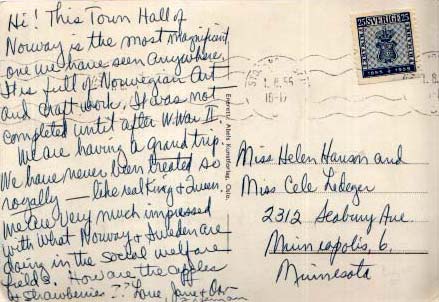 Hi! This Town Hall of
Norway is the most magnificent
one we have seen anywhere.
It is full of Norwegian Art
and craft work. It was not
completed until after W. War II.
We are having a grand trip.
We have never been treated so
royally — like real king & queen.
We are very much impressed
with what Norway & Sweden are
doing in the social welfare
fields. How are the apples
& strawberries?? Love, Jane &
Miss Helen Hanson and
Miss Cele
2312 Seabury Ave.
Minneapolis, 6.
Minnesota
25 SVERIGE 25
1855 1955
Kunstforlag, Oslo.